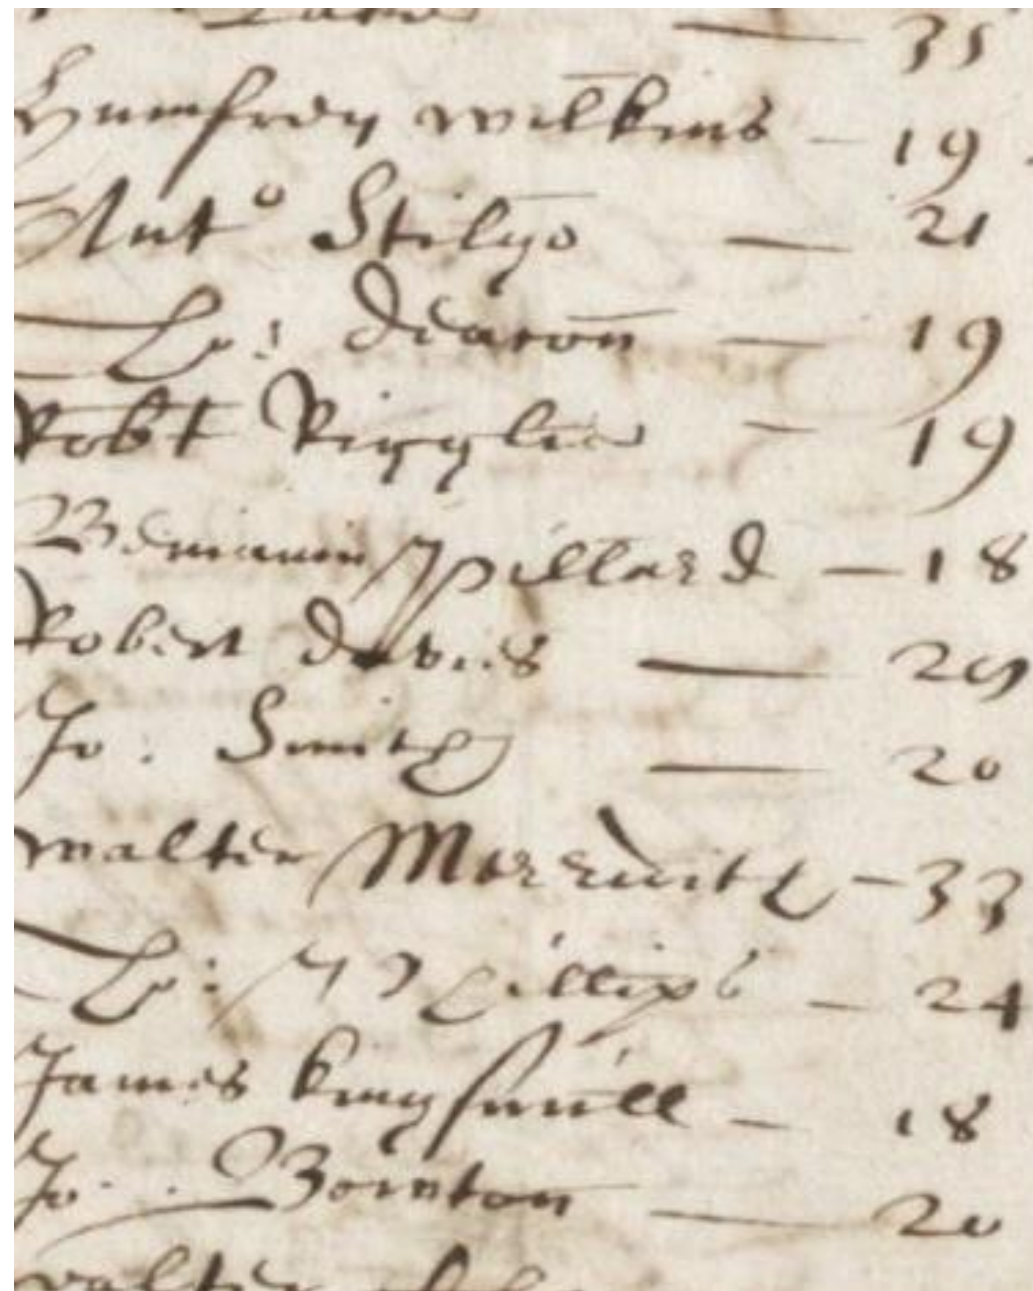 35
Humfrey Wilkins - 19
Anto Stilgo — 21
Tho: Deacon — 19
Robt Rigglie - 19
Beniamin Pillard — 18
Robert Davies — 29
Jo. Smith — 20
Walter Merrewith - 33
Tho: Phillips - 24
James Kingsmill - 18
Jo. Bointon — 20
Walter